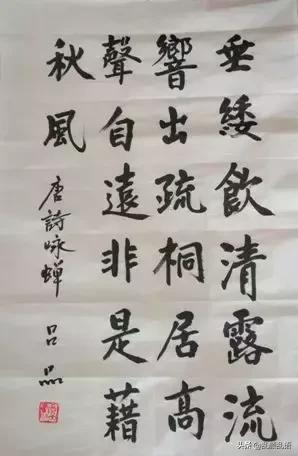 垂緌飲清露流
響出疏桐居高
聲自遠非是藉
秋風
唐詩咏蝉 吕品
头条 @乱翻乱语